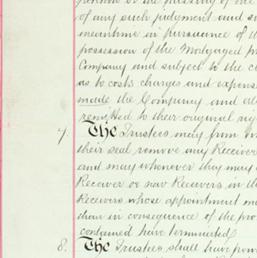 of any such judgment and
meantime in pursuance of
possession of the Mortgaged
Company and subject to the
as to costs charges and expens
made the Company and
remitted to their original
7. The Trustees may from
their seal remove any Receiver
and may whenever they may
Receiver or new Receivers in
Receivers whose appointment
down in consequence of the pro
contained have terminated
8. The Trustees shall have pow